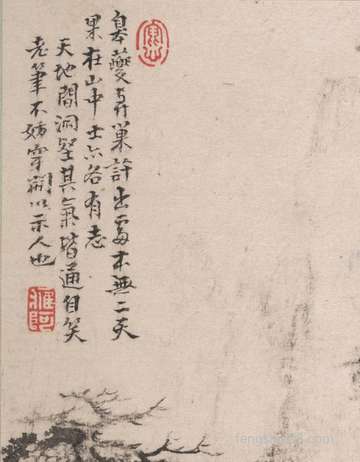 皋夔與巢許出處本無二夫
果在山中士亦各有志
天地間洞壑其氣皆通自笑
老筆不妨穿以示人也